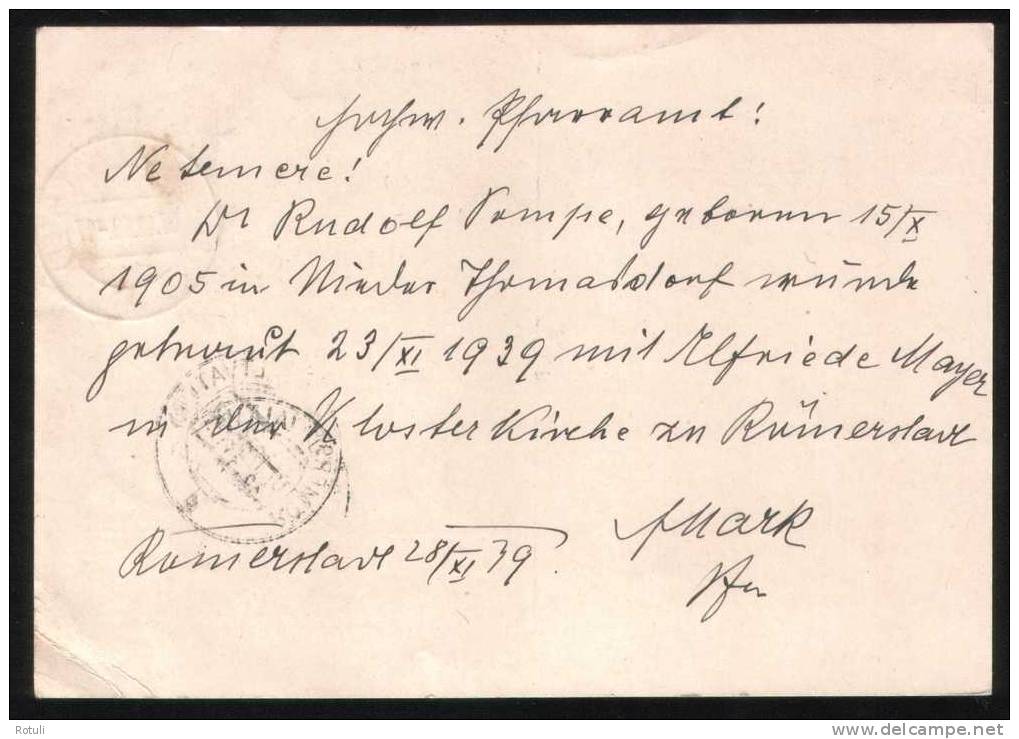 Hochw. Pfarramt!
Ne temere!
Dr Rudolf Pompe, geboren 15/X
1905 in Nieder Thomasdorf wurde
getraut 23/XI 1939 mit Elfriede Mayer
in der Klosterkirche zu Römerstadt
Römerstadt 28/XI 39.
Mark
Rotuli
www.delcampe.net